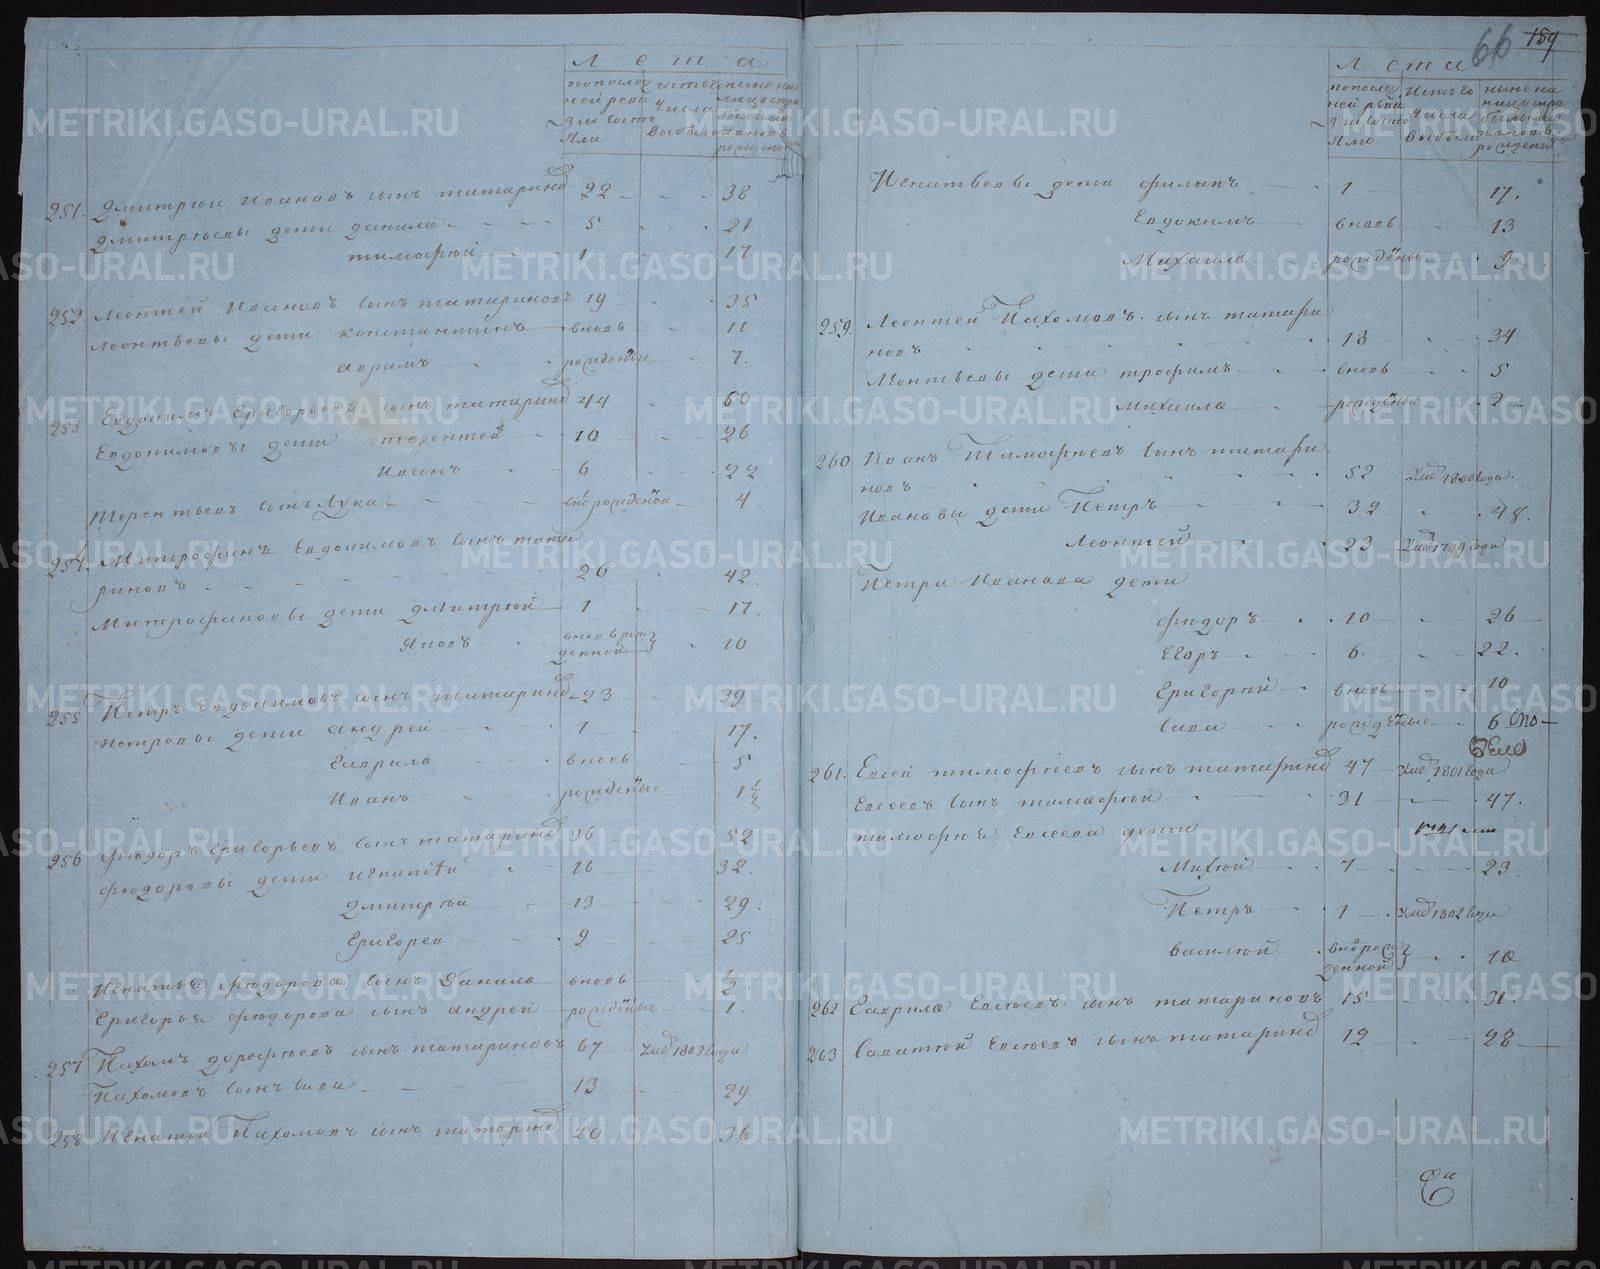 Лета
по последней ревизии состояли
из того числа выбыло
ныне на лицо с прибылыми и вновь рожденн
251. Дмитрий Ивановъ сынъ татаринов 22 38
Дмитриевы дети данила 5 21
тимофей 1 17
252 Леонтей Ивановъ сынъ татариновъ 19 35
Леонтьевы дети константинъ вновь 11
рожденые 7.
253 Евдокимъ Григорьевъ сынъ татаринов 44 60
Евдокимовы дети терентей 10 26
Иванъ 6 22
Терентьевъ сынъ Лука внов рожденой 4
254. Митрофанъ Евдокимовъ сынъ тата
риновъ 26 42.
Митрофановы дети дмитрей 1 17.
Яковъ вновь рож
денной 10
255 Петръ Евдокимовъ сынъ татаринов 23 39
Петровы дети андрей 1 17.
Гаврило вновь 5
Иванъ рожденые 1 1/2
256 Фюдоръ Григорьевъ сынъ татаринов 36 52
Фюдоровы дети игнатей 16 32.
Дмитрей 13 29.
Григорей 9 25
Игнатья фюдорова сынъ Данило вновь 1/2
Григорья фюдорова сынъ андрей рожденые 1.
257 Пахомъ дорофеевъ сынъ татариновъ 67 Умер 1803 года
Пахомовъ сынъ сава 13 29
258 Игнатей Пахомовъ сынъ татаринов 20 36
66 189
Лета
по последней ревизии состояли
из того числа выбыло
ныне на лицо с прибылыми и вновь рожденн
Игнатьевы дети филипъ 1 17.
Евдокимъ вновь 13
Михаила рожденые 9
259. Леонтей Пахомовъ сынъ татари
новъ 18 34
Леонтьевы дети трофимъ вновь 5
михаила рожденые 2
260 Иванъ Тимофеевъ сынъ татари
новъ 52 Умер 1800 года.
Ивановы дети Петръ 32 48.
Леонтей 23 Умер 1799 года.
Петра Иванова дети
фюдоръ 10 26
Егоръ 6 22.
Григорей вновь 10
сава рожденые 6
261. Евсей тимофеевъ сынъ татаринов 47 Умер 1801 года
Евсеевъ сынъ тимофей 31 47.
тимофея Евсеева дети
Михей 7 23
Петръ 1 Умер 1802 года
василей внов рож
денной 10
262 Гаврило Евсеевъ сынъ татариновъ 15 31.
263 Саватей Евсеевъ сынъ татаринов 12 28
METRIKI.GASO-URAL.RU